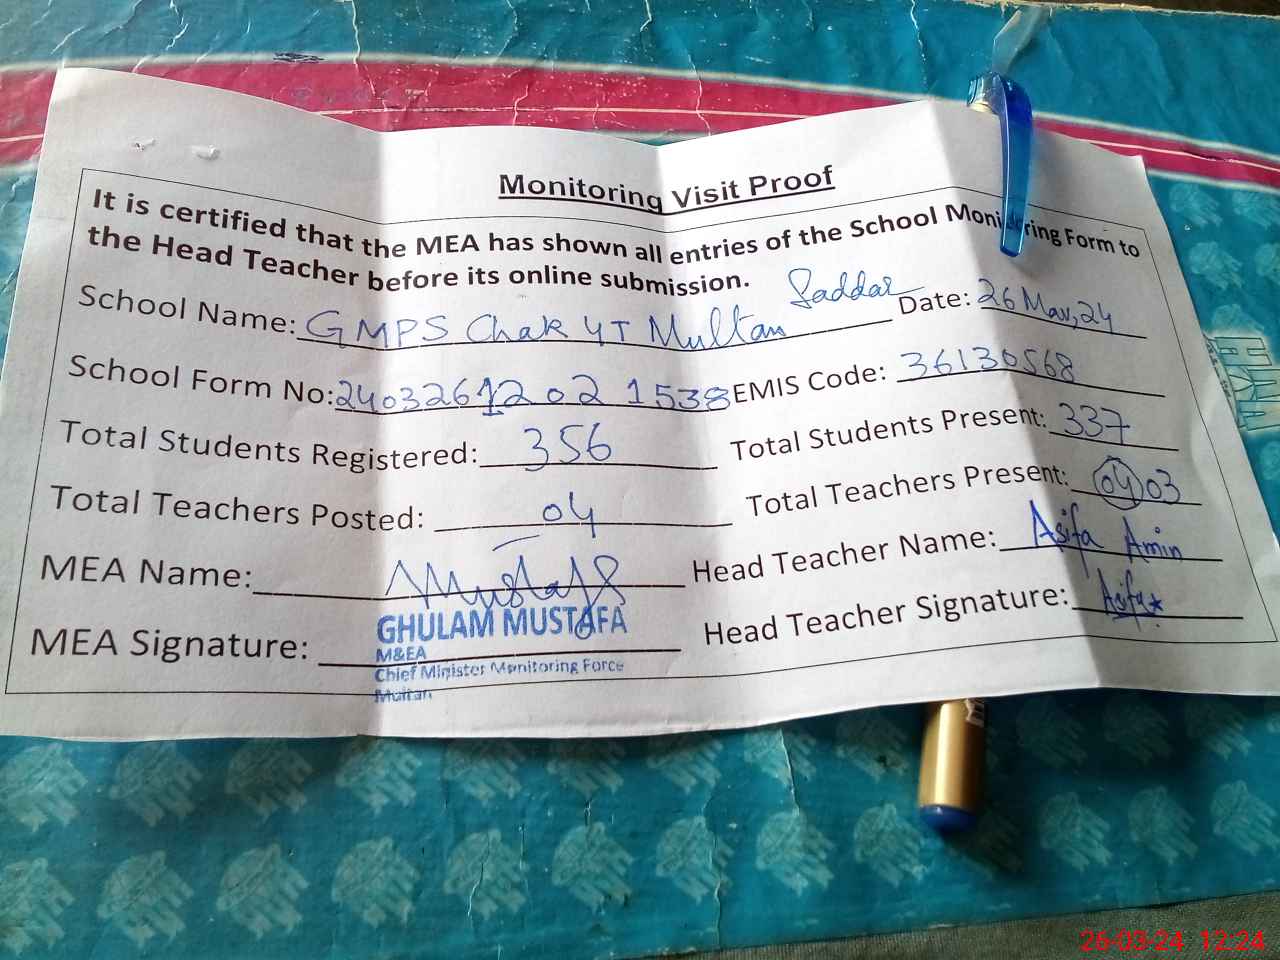 Monitoring Visit Proof
It is certified that the MEA has shown all entries of the School Monitoring Form to
the Head Teacher before its online submission.
School Name: GMPS Chak 4T Multan Saddar Date: 26 Mar, 24
School Form No: 24032612021538 EMIS Code: 36130568
Total Students Registered: 356 Total Students Present: 337
Total Teachers Posted: 04 Total Teachers Present: 04 03
MEA Name: Mustafa Head Teacher Name: Asifa Amin
MEA Signature: Head Teacher Signature: Asifa
GHULAM MUSTAFA
M&EA
Chief Minister Monitoring Force
Multan
26-03-24 12:24